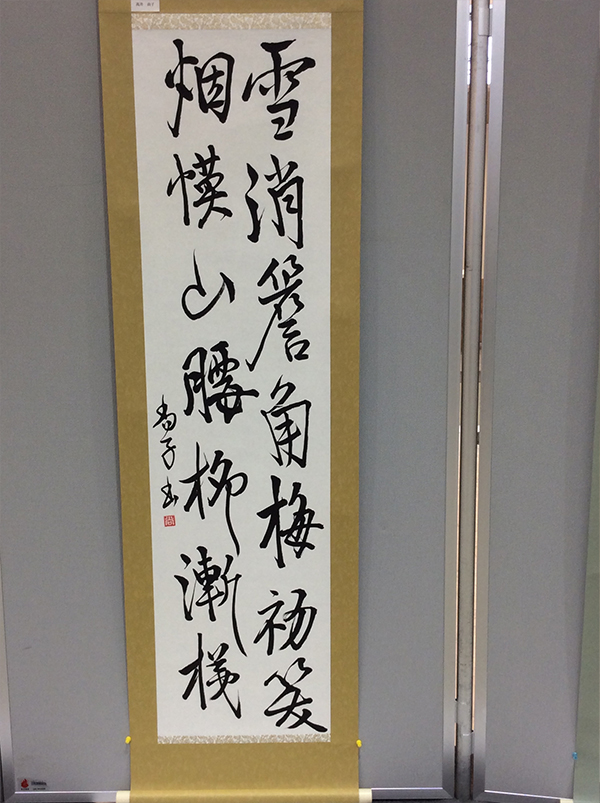 雪消簷角梅初笑
烟幙山腰柳漸
尚子書